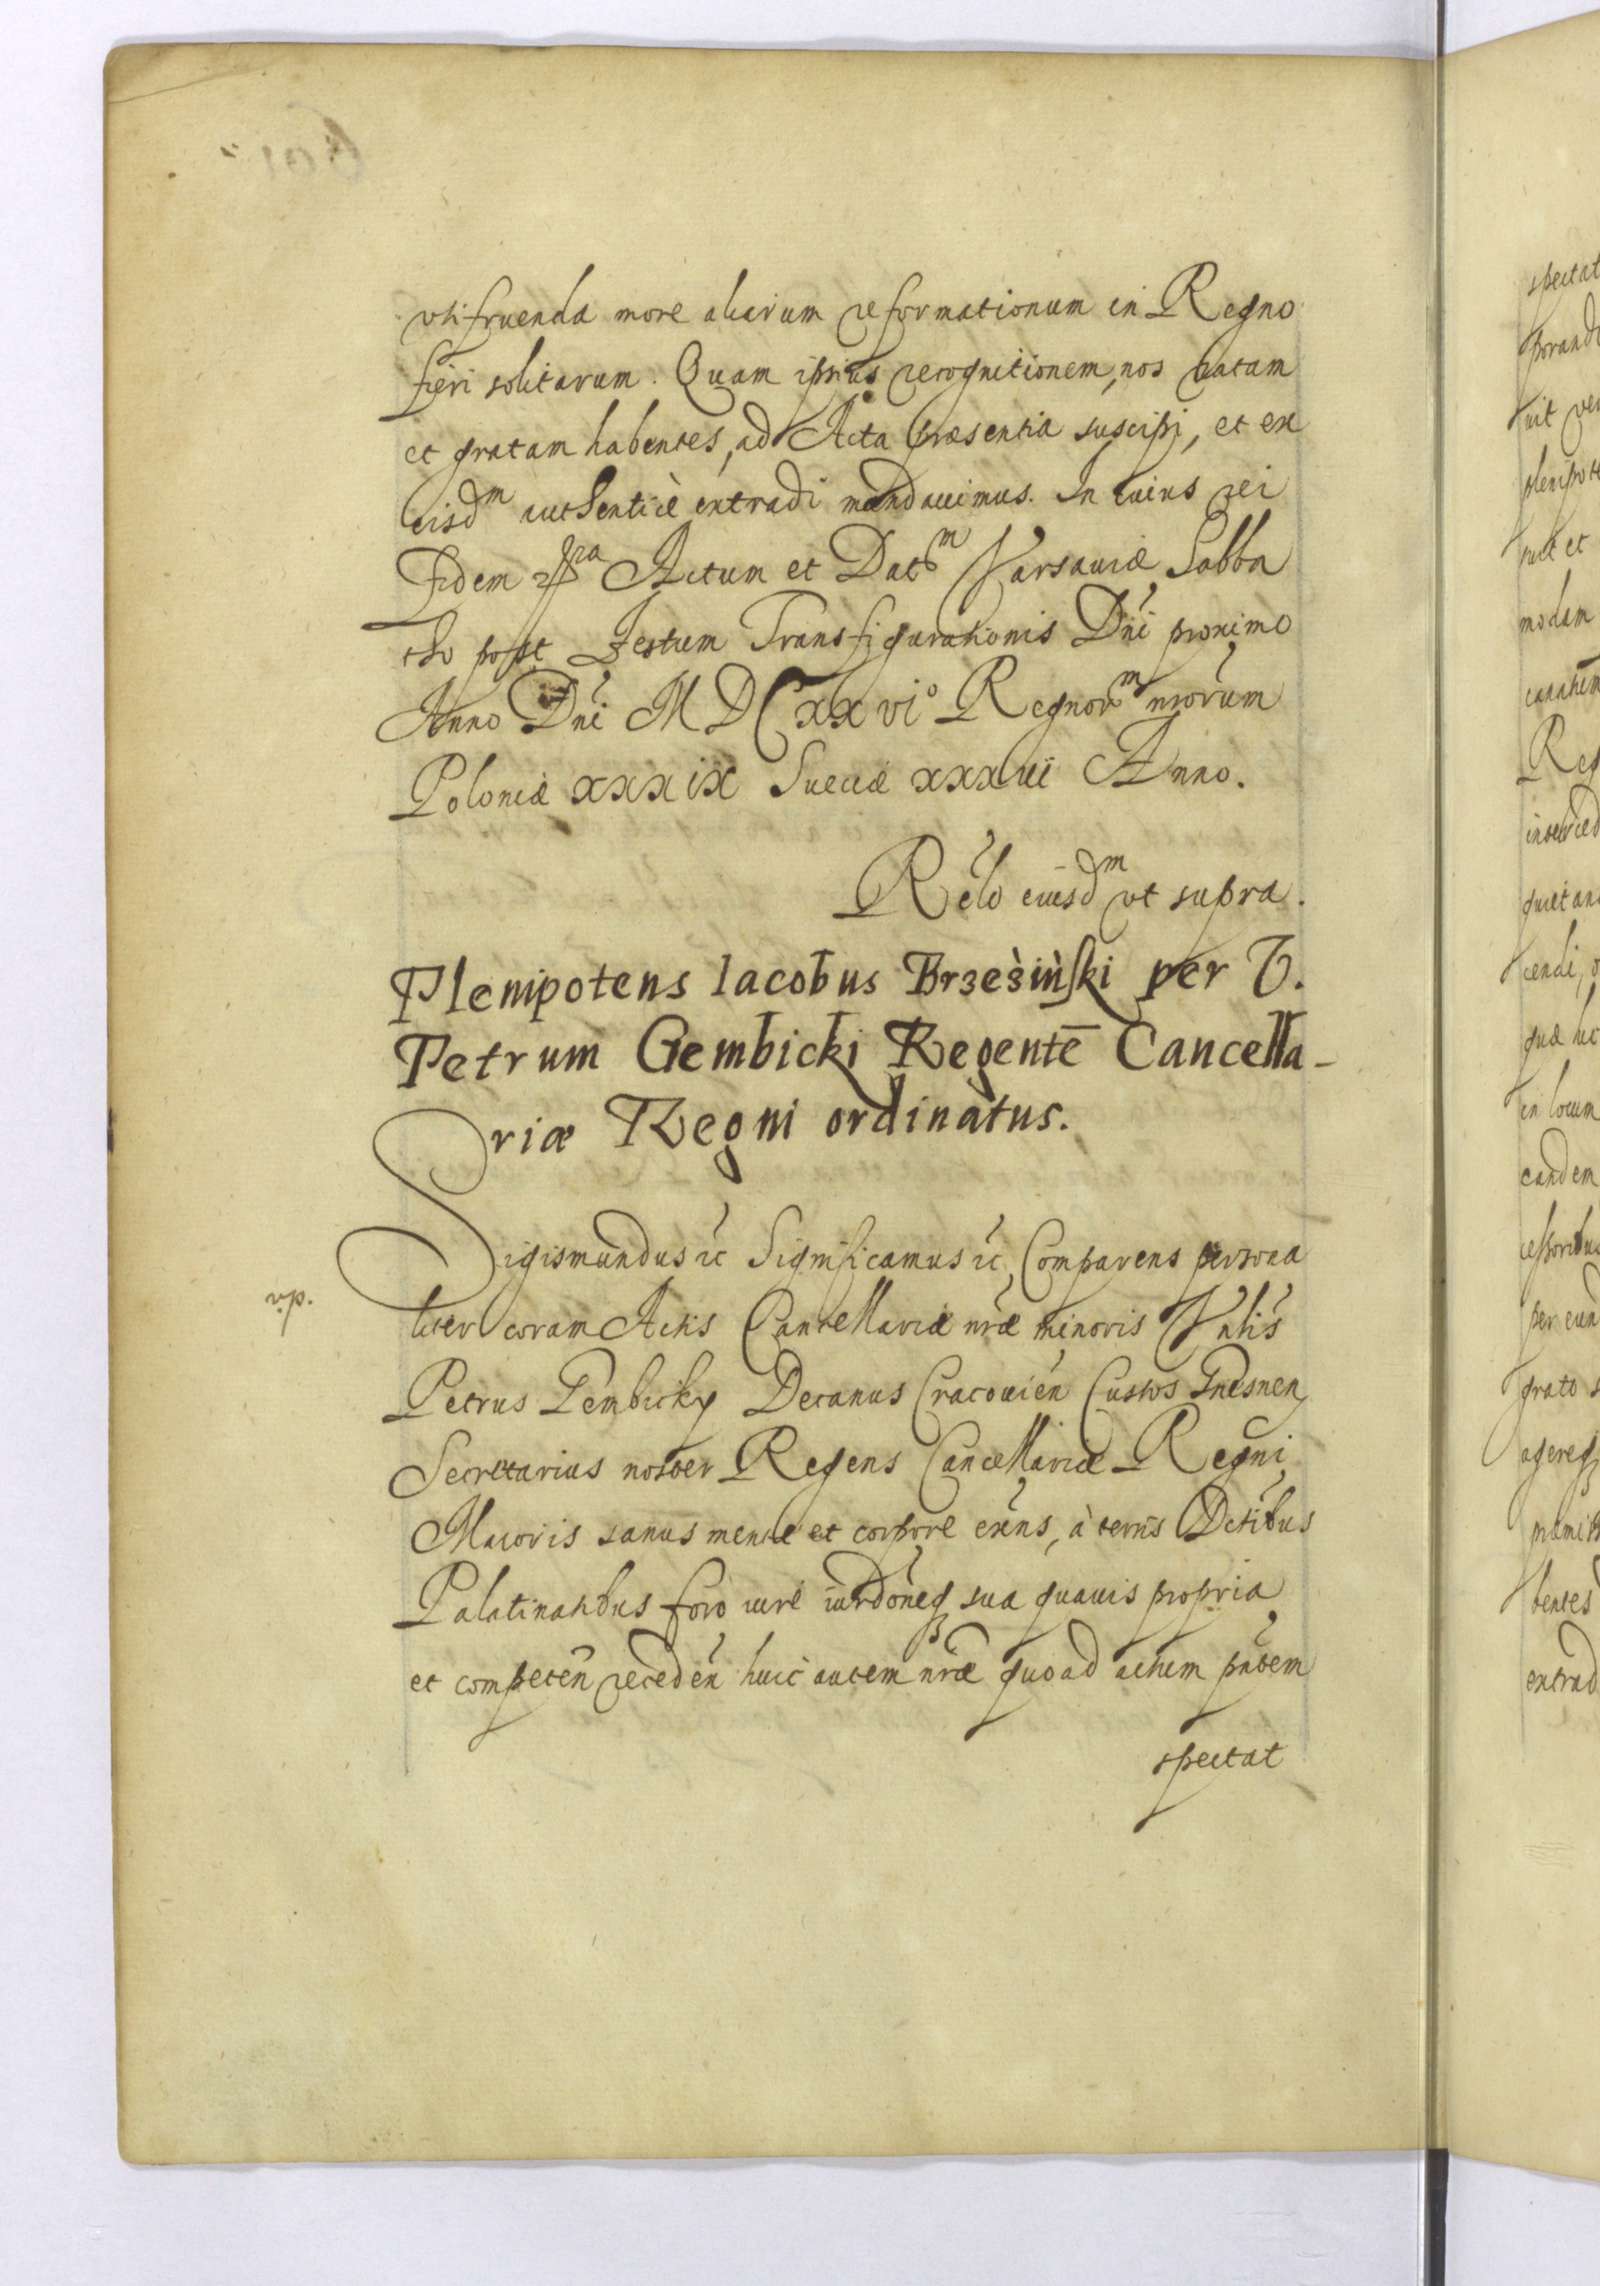 vtifruenda more aliarum reformationum in Regno
fieri solitarum. Quam ipsius recognitionem, nos ratam
et gratam habentes, ad Acta præsentia suscipi, et ex
eisdm authenticè extradi mandauimus. In cuius rei
Fidem Actum et Datm Varsauiæ Sabba
tho post Festum Transfigurationis Dni proximo
Anno Dni MDCxxvi° Regnorm nrorum
Poloniæ xxxix Sueciæ xxxiii Anno.
Relo eiusdm vt supra.
Plenipotens Iacobus Brzeźiński per V.
Petrum Gembicki Regentē Cancella-
riæ Regni ordinatus.
Sigismundus etc Significamus etc, Comparens persona
v.p.
liter coram Actis Cancellariæ nræ minoris Vnlis
Petrus Gembicky Decanus Cracouien Custos Gnesnen
Secretarius noster Regens Cancellariæ Regni
Maioris sanus mente et corpore exēns, à terris Dctibus
Palatinatibus foro iure iurdoneq sua quauis propria
et competēn recedēn huic autem nræ quoad actum pntem
spectat
spectat
modam
Reg
in locum
eandem
per eun
grato s
extrad